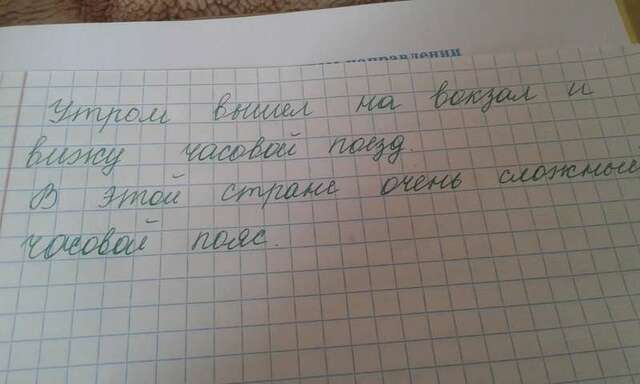 направлении
Утром вышел на вокзал и
вижу часовой поезд.
В этой стране очень сложный
часовой пояс.